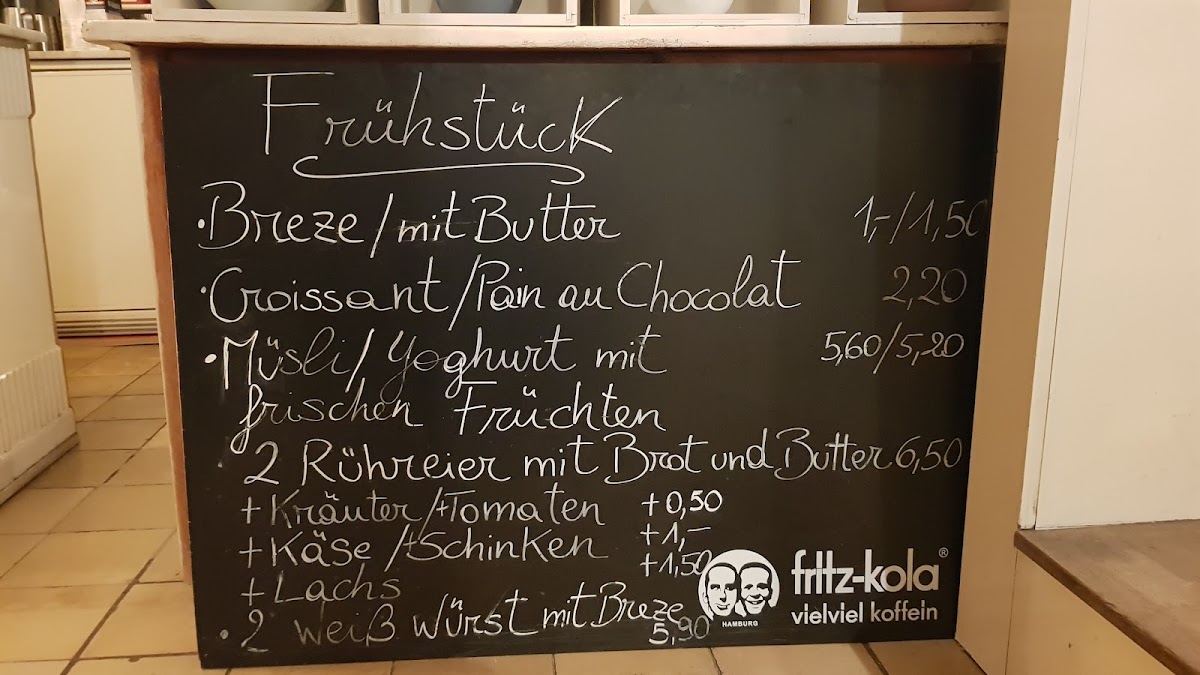 Frühstück
·Breze/mit Butter 1,-/1,50
·Croissant/Pain au Chocolat 2,20
·Müsli/Yoghurt mit 5,60/5,20
frischen Früchten
2 Rühreier mit Brot und Butter 6,50
+Kräuter/+Tomaten +0,50
+Käse/+Schinken +1,-
+Lachs +1,50
·2 weiß würst mit Breze
5,90
fritz-kola®
vielviel koffein
HAMBURG